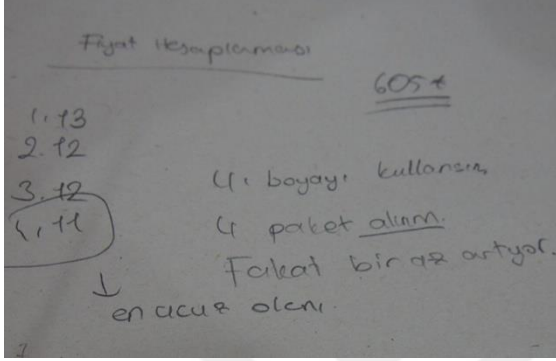 Fiyat Hesaplaması
605 ₺
1. 13
2. 12
3. 12
4. 11
4. boyayı kullansın
4 paket alınır.
Fakat biraz artıyor.
↓
en ucuz olanı.